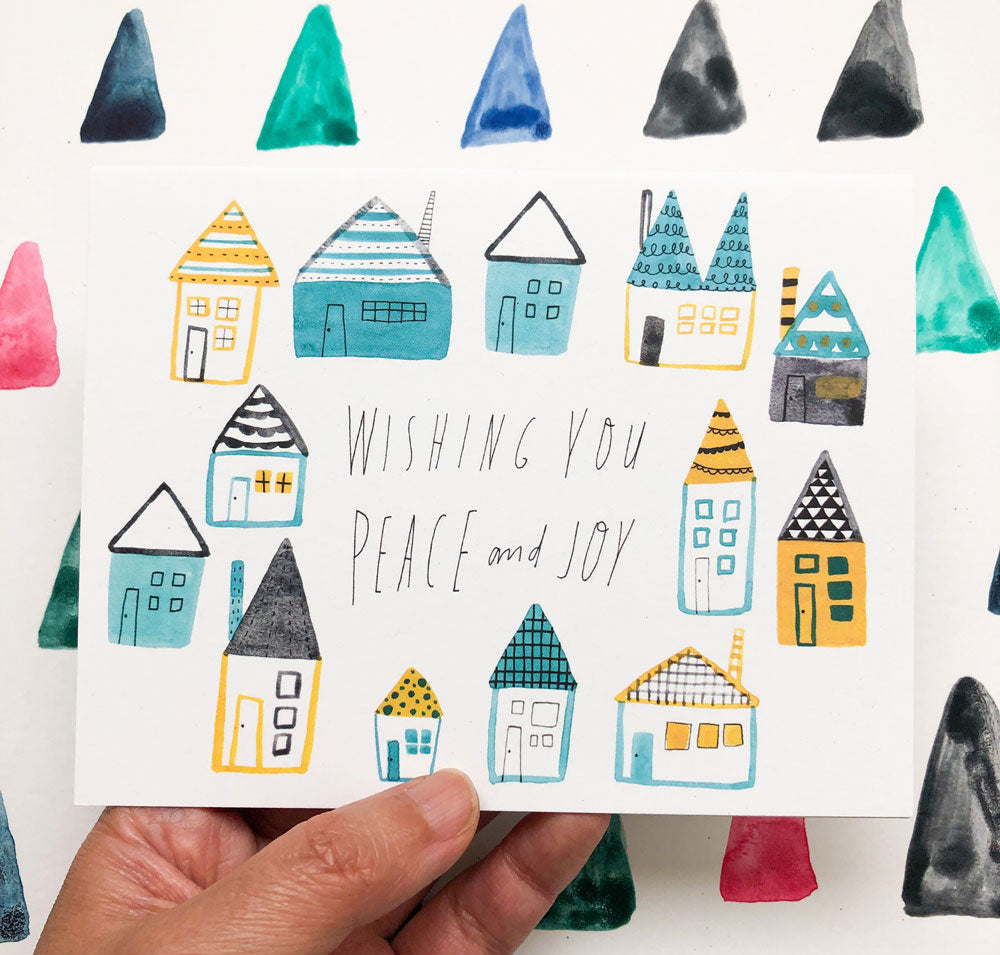 WISHING YOU
PEACE and JOY